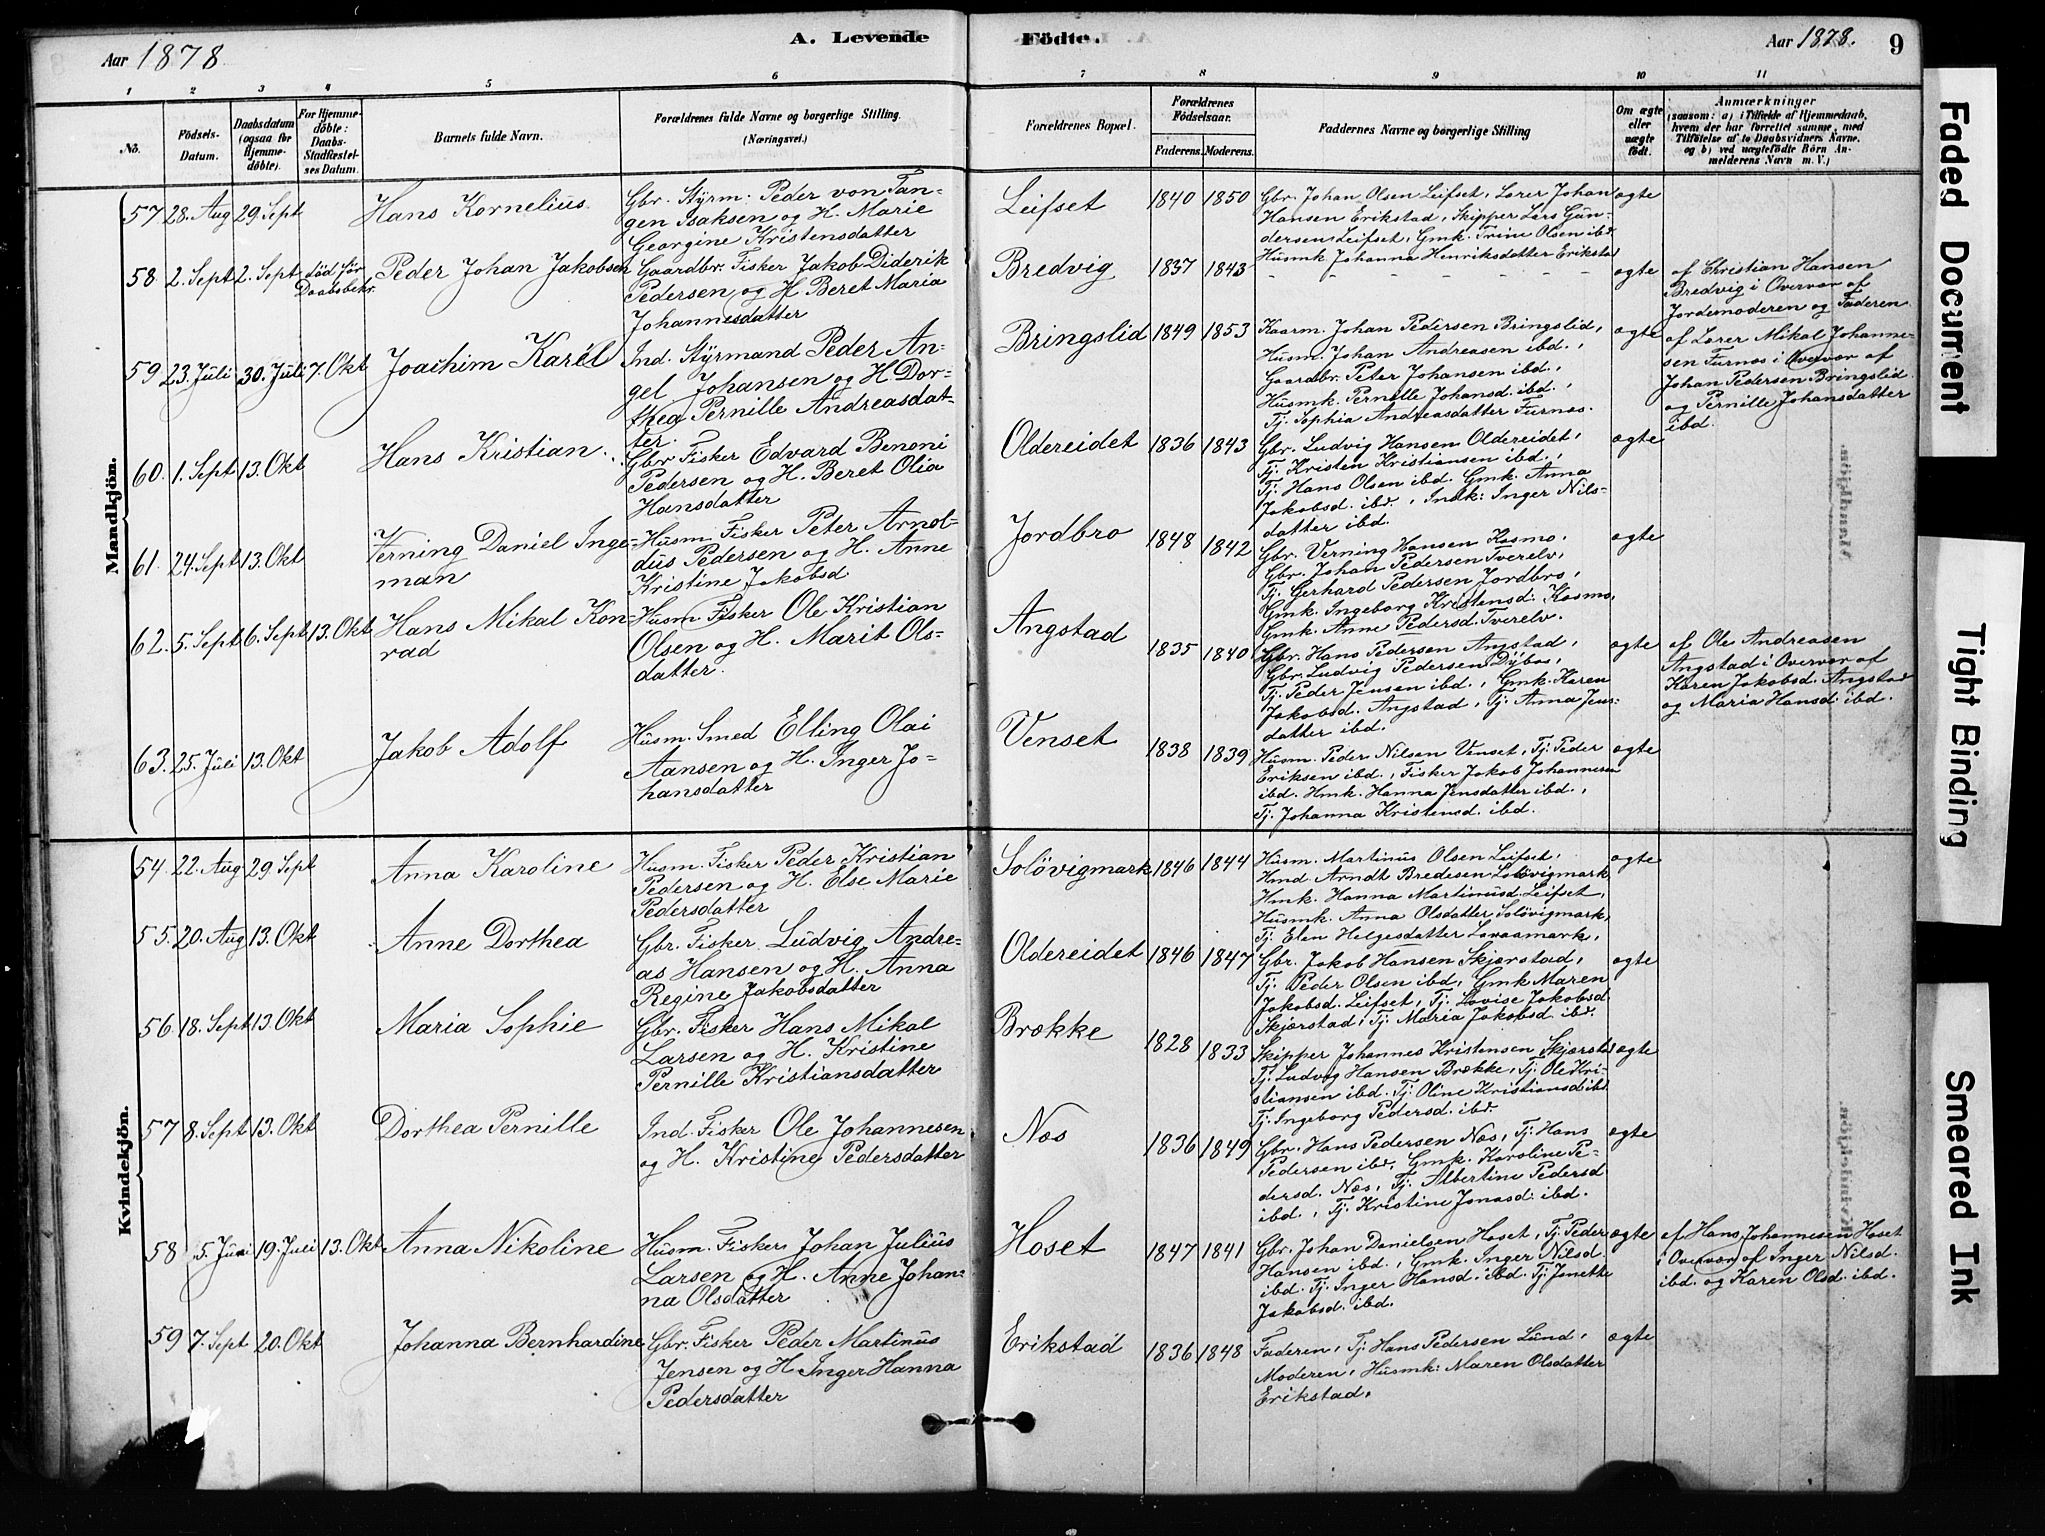 Aar 1878
A. Levende
Födte.
Aar 1878.
9
1 2 3 4 5 6 7 8 9 10 11
No.
Födsels-
Datum.
Daabsdatum
(ogsaa for
Hjemme-
döbte).
For Hjemme-
döbte:
Daabs-
Stadfæstel-
ses Datum.
Barnets fulde Navn.
Forældrenes fulde Navne og borgerlige Stilling.
(Næringsvei.)
Forældrenes Bopæl.
Forældrenes
Födselsaar.
Faderens. Moderens.
Faddernes Navne og borgerlige Stilling
Om ægte
eller
uægte
födt.
Anmærkninger
(saasom: a) i Tilfælde af Hjemmedaab,
hvem der har forrettet samme, med
Tilföielse af to Daabsvidners Navne,
og b) ved uægtefödte Börn An-
melderens Navn m. V.)
Mandkjön.
57 28. Aug 29. Sept
Hans Kornelius
Gbr. Styrm. Peder von Tan-
gen Isaksen og H. Marie
Georgine Kristensdatter
Leifset
1840 1850
Gbr. Johan Olsen Leifset, Lærer Johan
Hansen Erikstad, Skipper Lars Gun-
dersen Leifset, Gmk. Trine Olsen ibd.
Husmk Johanna Henriksdatter Erikstad
ægte
58 2. Sept 2. Sept död för
Daabsbekr.
Peder Johan Jakobsen
Gaardbr. Fisker Jakob Diderik
Pedersen og H. Beret Maria
Johannesdatter
Bredvig
1837 1843
– – – – – – – – –
ægte
af Christian Hansen
Bredvig i Overvær af
Jordemoderen og Faderen
59 23. Juli 30. Juli 7. Okt
Joachim Karél
Ind. Styrmand Peder An-
gel Johansen og H. Dor-
thea Pernille Andreasdat-
ter.
Bringslid
1849 1853
Kaarm. Johan Pedersen Bringslid,
Husm. Johan Andreasen ibd.,
Gaardbr. Peter Johansen ibd.,
Husmk. Pernille Johansd. ibd.,
Tj. Sophia Andreasdatter Furnæs.
ægte
af Lærer Mikal Johanne-
sen Furnæs i Overvær af
Johan Pedersen Bringslid
og Pernille Johansdatter
ibd.
60. 1. Sept 13. Okt
Hans Kristian
Gbr. Fisker Edvard Benoni
Pedersen og H. Beret Olia
Hansdatter
Oldereidet
1836 1843
Gbr. Ludvig Hansen Oldereidet,
Tj. Kristen Kristiansen ibd.,
Tj. Hans Olsen ibd. Gmk. Anna
Jakobsd. ibd., Indk: Inger Nils-
datter ibd.
ægte
61. 24. Sept 13. Okt
Verning Daniel Inge-
man
Husm. Fisker Peter Arnol-
dus Pedersen og H. Anne
Kristine Jakobsd
Jordbro
1848 1842
Gbr. Verning Hansen Kosmo,
Gbr. Johan Pedersen Tverelv,
Tj. Gerhard Pedersen Jordbro,
Gmk. Ingeborg Kristensd. Kosmo,
Gmk. Anne Pedersd. Tverelv.
ægte
62. 5. Sept 6. Sept 13. Okt
Hans Mikal Kon-
rad
Husm. Fisker Ole Kristian
Olsen og H. Marit Ols-
datter.
Angstad
1835 1840
Gbr. Hans Pedersen Angstad,
Gbr. Ludvig Pedersen Dybos,
Tj. Peder Jensen ibd., Gmk. Karen
Jakobsd. Angstad, Tj. Anna Jens-
datter ibd.
ægte
af Ole Andreasen
Angstad i Overvær af
Karen Jakobsd. Angstad
og Maria Hansd. ibd.
63. 25. Juli 13. Okt
Jakob Adolf
Husm. Smed Elling Olai
Aansen og H. Inger Jo-
hansdatter
Venset
1838 1839
Husm. Peder Nilsen Venset, Tj. Peder
Eriksen ibd., Fisker Jakob Johannesen
ibd. Hmk. Hanna Jensdatter ibd.,
Tj. Johanna Kristensd. ibd.
ægte
Kvindekjön.
54. 22. Aug 29. Sept
Anna Karoline
Husm. Fisker Peder Kristian
Pedersen og H. Else Marie
Pedersdatter
Solövigmark
1846 1844
Husm. Martinus Olsen Leifset,
Hmd Arndt Bredesen Solövigmark
Hmk. Hanna Martinusd. Leifset,
Husmk. Anna Olsdatter Solövigmark,
Tj. Elen Helgesdatter Lovaasmark,
ægte
55. 20. Aug 13. Okt
Anne Dorthea
Gbr. Fisker Ludvig Andre-
as Hansen og H. Anna
Regine Jakobsdatter
Oldereidet
1846 1847
Gbr. Jakob Hansen Skjærstad,
Tj. Peder Olsen ibd, Gmk Maren
Jakobsd. Leifset, Tj. Lovise Jakobsd.
Skjærstad, Tj. Maria Jakobsd ibd.
ægte
56. 18. Sept 13. Okt
Maria Sophie
Gbr. Fisker Hans Mikal
Larsen og H. Kristine
Pernille Kristiansdatter
Brække
1828 1833
Skipper Johannes Kristensen Skjærstad
Tj. Ludvig Hansen Brække, Tj. Ole Kri-
stiansen ibd. Tj. Oline Kristiansd ibd
Tj. Ingeborg Pedersd. ibd.
ægte
57 8. Sept 13. Okt
Dorthea Pernille
Ind. Fisker Ole Johannesen
og H. Kristine Pedersdatter
Næs
1836 1849
Gbr. Hans Pedersen Næs, Tj. Hans
Pedersen ibd, Gmk. Karoline Pe-
dersd. Næs, Tj. Albertine Pedersd
ibd., Tj. Kristine Jonasd. ibd.
ægte
58 5. Juni 19. Juli 13. Okt
Anna Nikoline
Husm. Fisker Johan Julius
Larsen og H. Anne Johan-
na Olsdatter
Hoset
1847 1841
Gbr. Johan Danielsen Hoset, Tj Peder
Hansen ibd., Gmk. Inger Nilsd
ibd. Tj. Inger Hansd. ibd. Tj. Jonette
Jakobsd. ibd.
ægte
af Hans Johannesen Hoset
i Overvær af Inger Nilsd.
ibd. og Karen Olsd. ibd.
59 7. Sept 20. Okt
Johanna Bernhardine
Gbr. Fisker Peder Martinus
Jensen og H. Inger Hanna
Pedersdatter
Erikstad
1836 1848
Faderen, Tj. Hans Pedersen Lund,
Moderen, Husmk: Maren Olsdatter
Erikstad,
ægte
Faded Document
Tight Binding
Smeared Ink